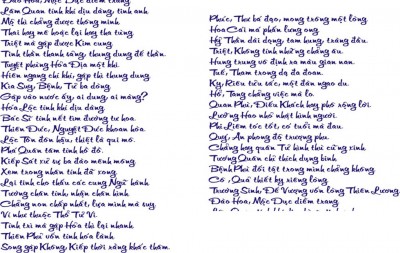 Đào Hoa, Mộc Dục điểm trang
Lâm Quan tính khí dịu dàng, tính anh
Mệ thì chẳng được thông minh
Thai hay mê hoặc lại hay tha từng.
Triệt mà gặp được Kim cung
Tinh thần thanh sảng, thung dung để thân.
Tuyết phùng Hỏa Địa một khi.
Hiên ngang chí khí, gặp thì thung dung
Kìa Suy, Bệnh, Tử ba dòng
Gặp vào nước ấy, ai dung, ai màng?
Hóa Lộc tính khí dịu dàng.
Bác Sĩ tính nết tìm đường tư hoa.
Thiên Đức, Nguyệt Đức khoan hòa.
Lộc Tồn đôn hậu, thiệt là qui mô.
Phá Quân tâm tính hồ đồ.
Kiếp Sát xử sự ba đào mênh mông.
Xem trong nhân tính đã xong.
Lại tính cho thấu các cung Ngũ hành.
Tướng chân tính, nhận chân hình.
Chẳng nơn chấp nhất, lựa mình mà suy.
Ví như thuộc Thổ Tử Vi.
Tính trì mà gặp Hỏa thì lại nhanh
Thiên Phủ vốn tính hòa lành.
Song gặp Không, Kiếp thời rằng khác thâm.
Phúc, Thư bá đạo, mong trống một lòng.
Hoa Cái mà phấn lưng ong.
Hỷ Thần dài dạng, tam hung, trắng đầu.
Triệt, Không tính những chẳng âu.
Hung trung vô định ra màu gian nan.
Tuế, Tham trong dạ đa đoan.
Kỵ, Riêu tửu sắc, một đàn ngao du.
Hổ, Tang chẳng việc mà lo.
Quan Phủ, Điếu Khách hay phô rộng lời.
Lưỡng Hao nhỏ nhặt hình người.
Phi Liêm tóc tốt, có tuổi mà đau.
Quý, Ân phong độ trượng phu.
Chẳng hay quân Tử hình thù cũng xinh.
Tướng Quân chí thích dụng binh.
Bệnh Phù đổi tật trong mình chẳng không
Cô, Quả thiết kỷ riêng lòng.
Trường Sinh, Đế Vượng vốn lòng Thiên Lương.
Đào Hoa, Mộc Dục điểm trang.